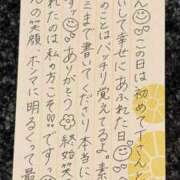 ン☺この日は初めて丁さんと
いして幸せにあふれた日☺
のことはバッチリ覚えてるよ。素
ミまで書いてくださり本当に
す☺ありがとう❀終始笑
れたのは私の方こそです♡っ
んの笑顔、ホンマに明るくって最